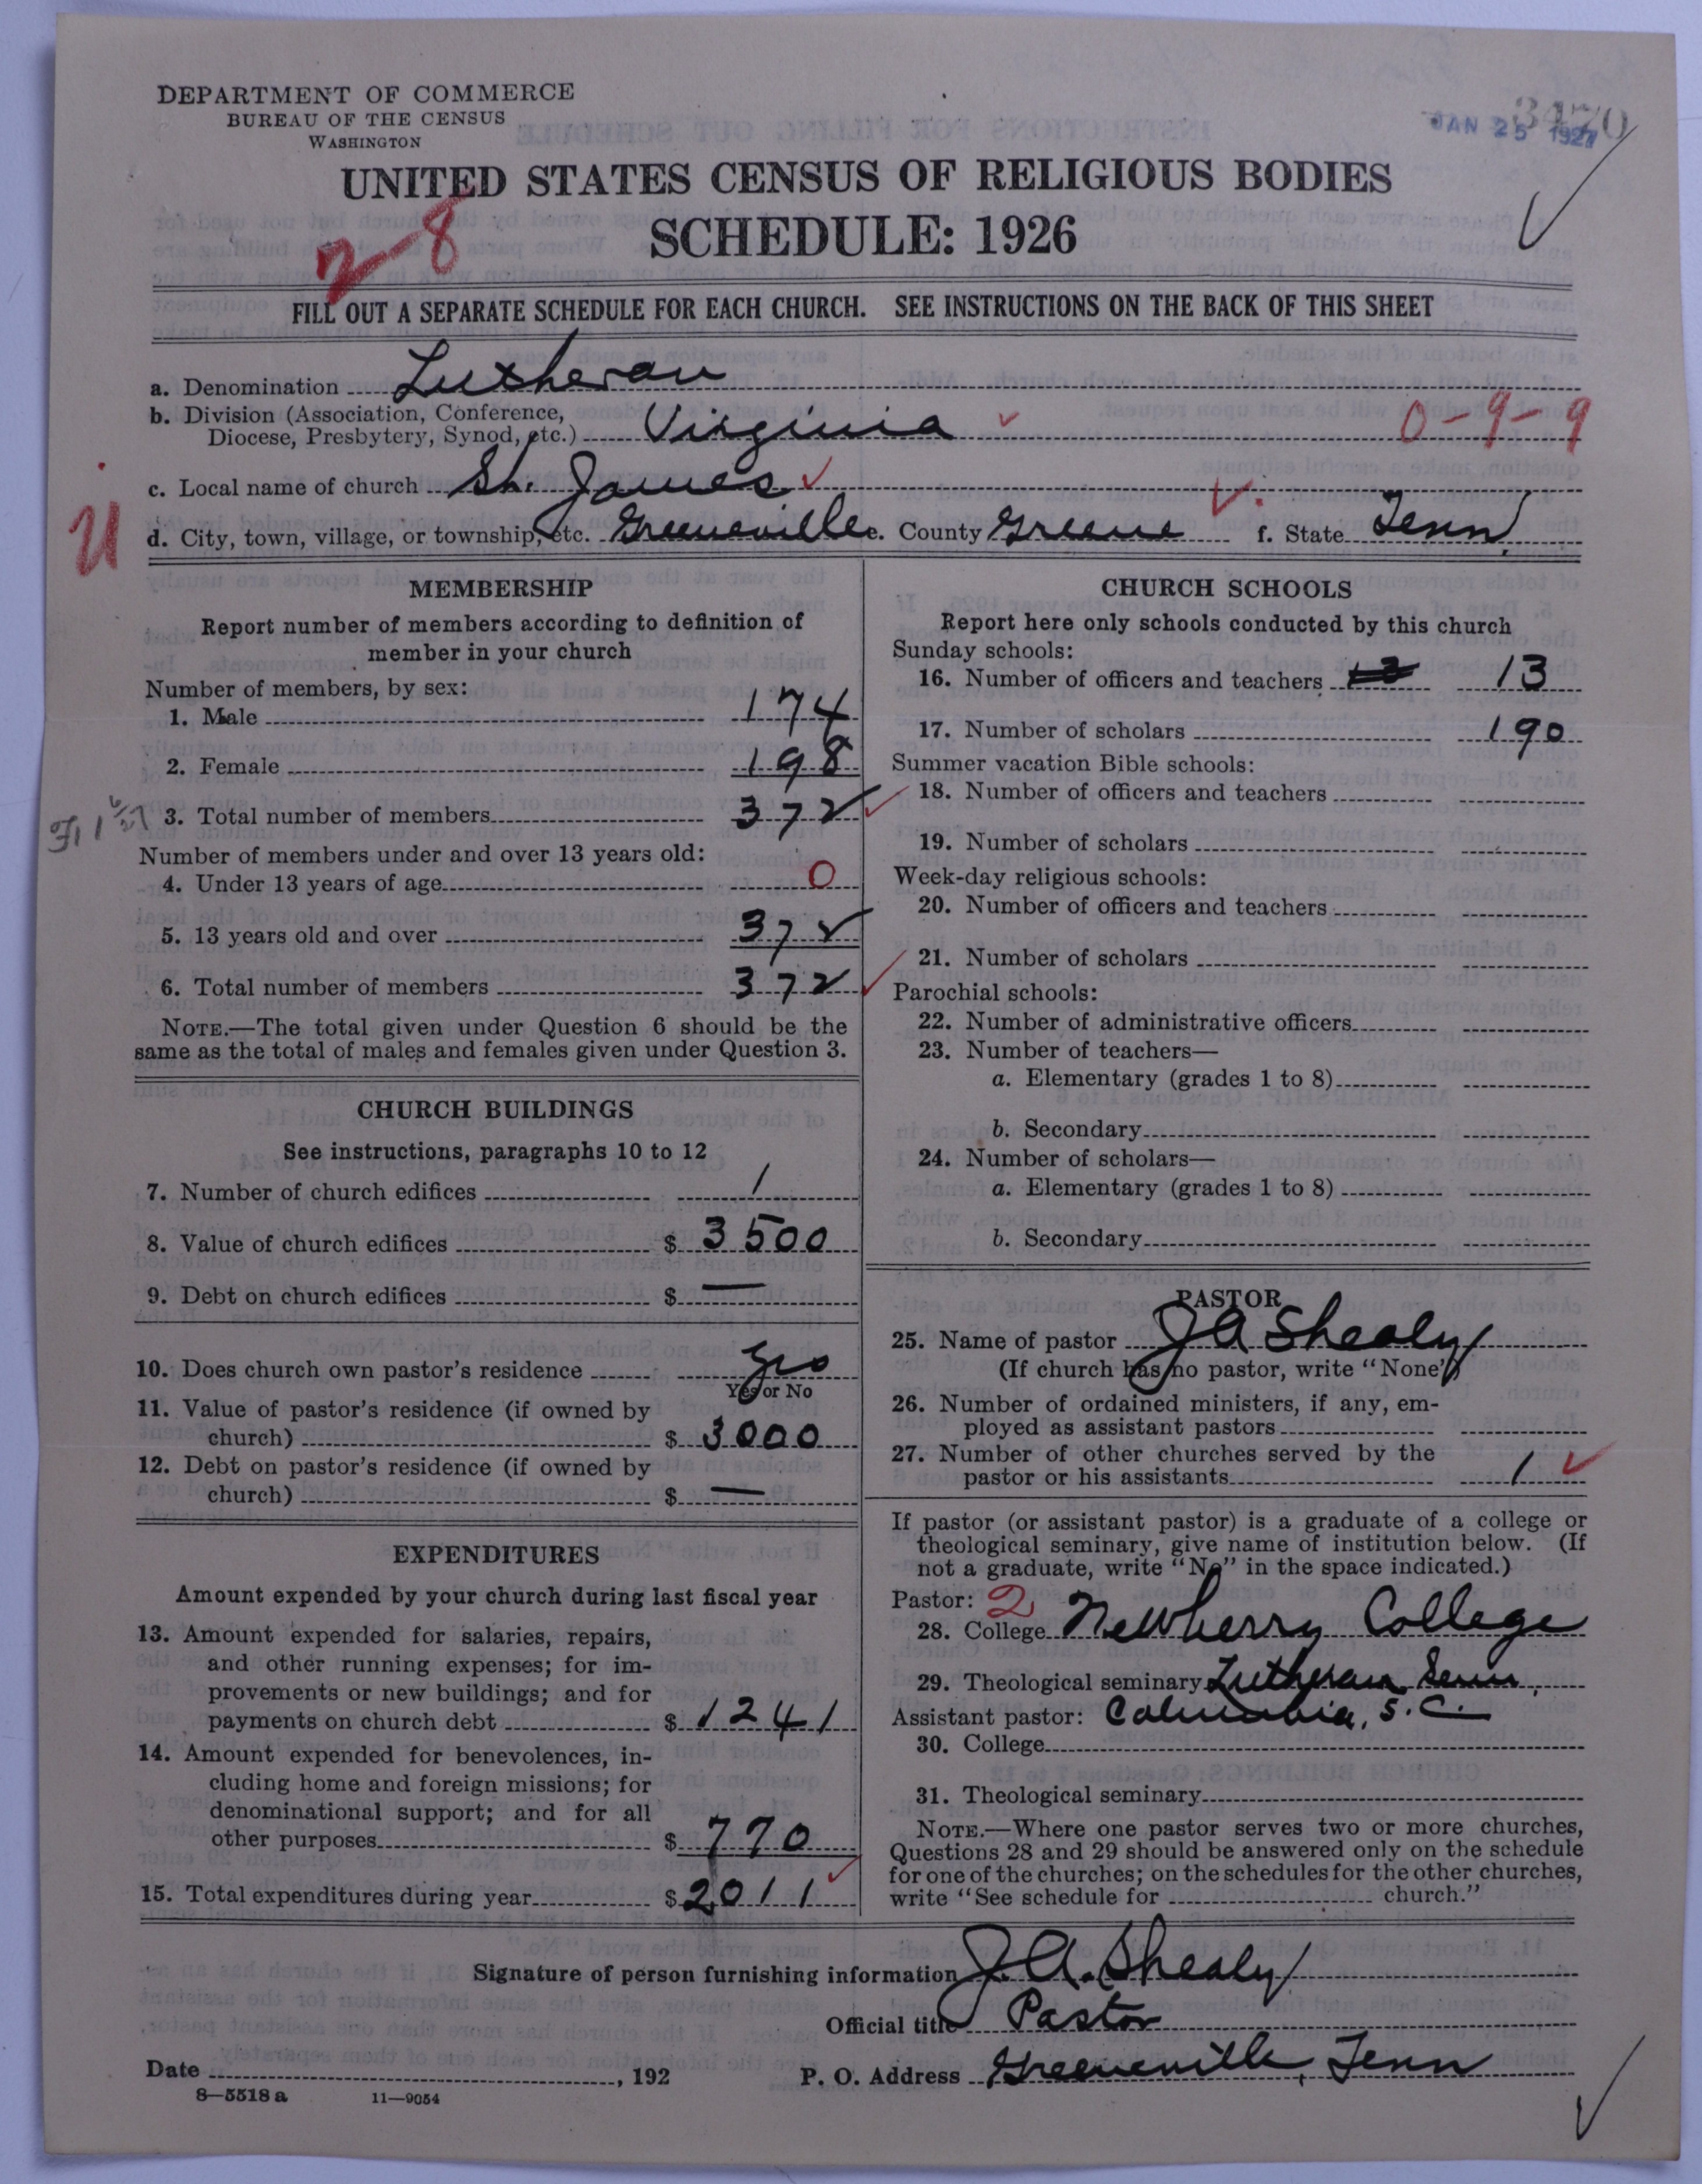 DEPARTMENT OF COMMERCE
BUREAU OF THE CENSUS
WASHINGTON
3470
JAN 25 1927
UNITED STATES CENSUS OF RELIGIOUS BODIES
SCHEDULE: 1926
2-8
FILL OUT A SEPARATE SCHEDULE FOR EACH CHURCH. SEE INSTRUCTIONS ON THE BACK OF THIS SHEET
a. Denomination Lutheran
b. Division (Association, Conference,
Diocese, Presbytery, Synod, etc.) Virginia
0-9-9
c. Local name of church St. James
U
d. City, town, village, or township, etc. Greeneville e. County Greene f. State Tenn.
MEMBERSHIP
Report number of members according to definition of
member in your church
Number of members, by sex:
1. Male 174
2. Female 198
3. Total number of members 372
Number of members under and over 13 years old:
4. Under 13 years of age 0
5. 13 years old and over 372
6. Total number of members 372
NOTE.—The total given under Question 6 should be the
same as the total of males and females given under Question 3.
CHURCH BUILDINGS
See instructions, paragraphs 10 to 12
7. Number of church edifices 1
8. Value of church edifices $ 3500
9. Debt on church edifices $ —
10. Does church own pastor's residence yes
Yes or No
11. Value of pastor's residence (if owned by
church) $ 3000
12. Debt on pastor's residence (if owned by
church) $ —
EXPENDITURES
Amount expended by your church during last fiscal year
13. Amount expended for salaries, repairs,
and other running expenses; for im-
provements or new buildings; and for
payments on church debt $ 1241
14. Amount expended for benevolences, in-
cluding home and foreign missions; for
denominational support; and for all
other purposes $ 770
15. Total expenditures during year $ 2011
CHURCH SCHOOLS
Report here only schools conducted by this church
Sunday schools:
16. Number of officers and teachers 13
17. Number of scholars 190
Summer vacation Bible schools:
18. Number of officers and teachers
19. Number of scholars
Week-day religious schools:
20. Number of officers and teachers
21. Number of scholars
Parochial schools:
22. Number of administrative officers
23. Number of teachers—
a. Elementary (grades 1 to 8)
b. Secondary
24. Number of scholars—
a. Elementary (grades 1 to 8)
b. Secondary
PASTOR
25. Name of pastor J A Shealy
(If church has no pastor, write "None")
26. Number of ordained ministers, if any, em-
ployed as assistant pastors
27. Number of other churches served by the
pastor or his assistants 1
If pastor (or assistant pastor) is a graduate of a college or
theological seminary, give name of institution below. (If
not a graduate, write "No" in the space indicated.)
Pastor: 2
28. College Newberry College
29. Theological seminary Lutheran Sem.
Assistant pastor: Columbia, S. C.
30. College
31. Theological seminary
NOTE.—Where one pastor serves two or more churches,
Questions 28 and 29 should be answered only on the schedule
for one of the churches; on the schedules for the other churches,
write "See schedule for church."
Signature of person furnishing information J. A. Shealy
Official title Pastor
Date , 192
P. O. Address Greeneville, Tenn
8—5518 a 11—9054